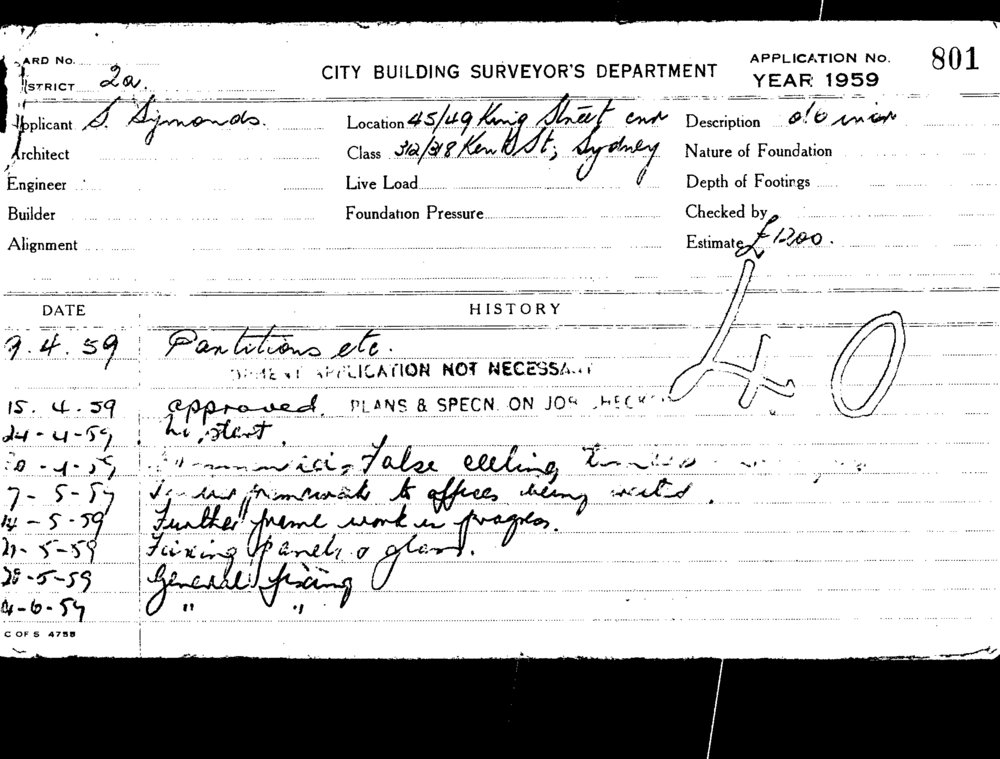 ARD No. APPLICATION No. 801
ISTRICT 2a. CITY BUILDING SURVEYOR'S DEPARTMENT YEAR 1959
Applicant S. Symonds. Location 45/49 King Street cnr Description
Architect Class 312/318 Kent St, Sydney Nature of Foundation
Engineer Live Load Depth of Footings
Builder Foundation Pressure Checked by
Alignment Estimate £1200.
DATE HISTORY
9.4.59 Partitions etc. 40
APPLICATION NOT NECESSARY
15.4.59 approved. PLANS & SPECN. ON JOB CHECKED
24-4-59 no start.
False ceiling
7-5-59 framework to offices being
14-5-59 Further frame work in progress.
21-5-59 Fixing panels & glass.
28-5-59 General fixing
4-6-59 " "
C OF S 475B